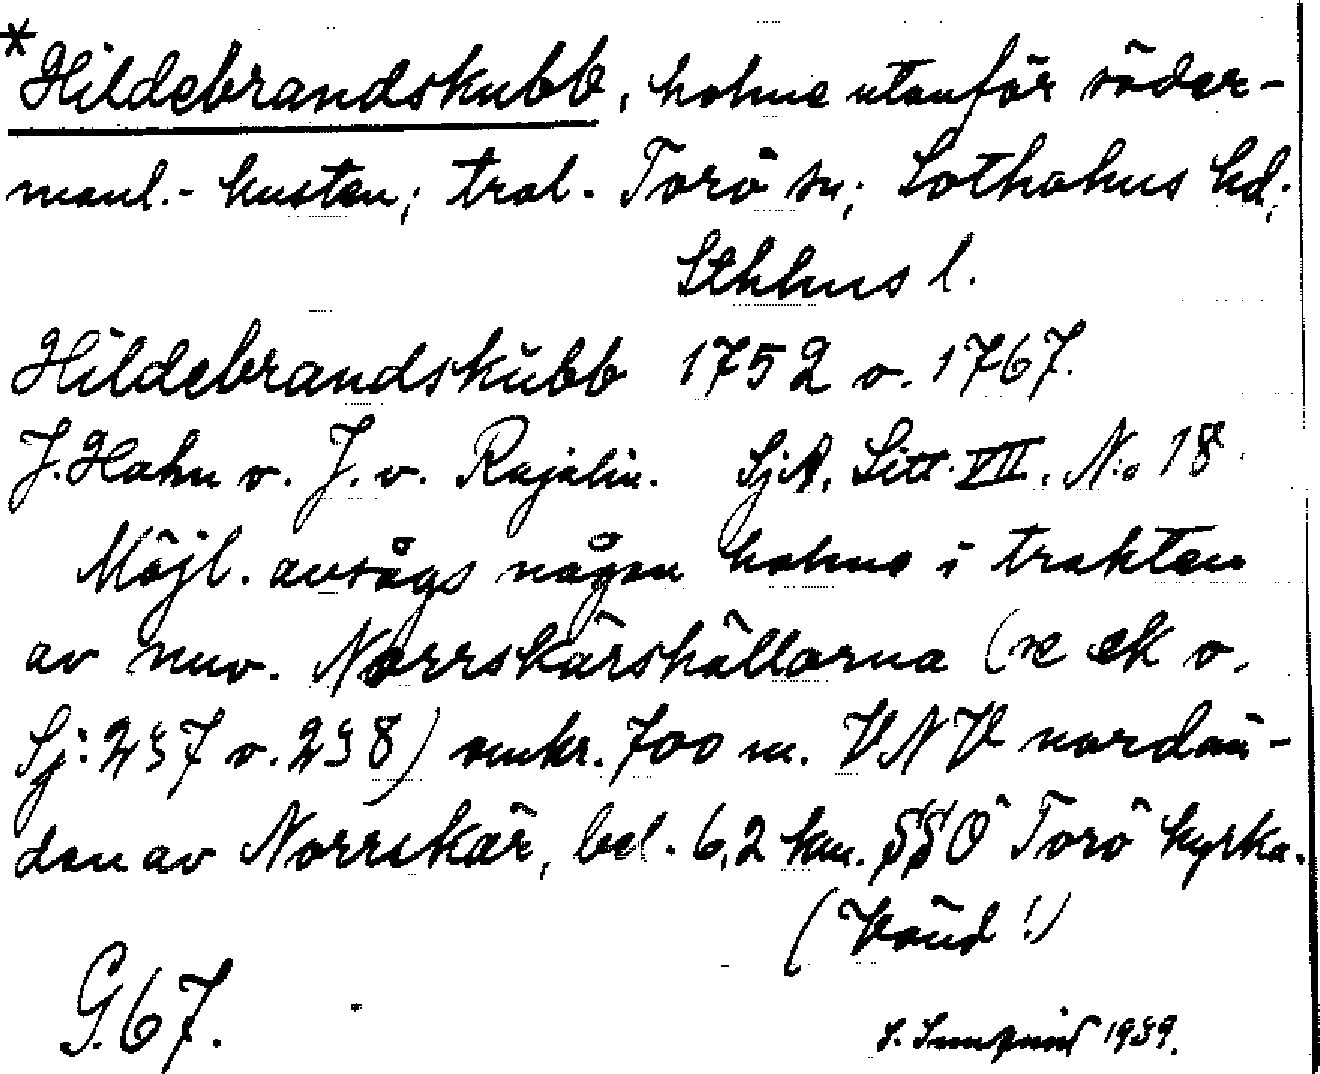 *Hildebrandskubb, holme utanför söder-
manl.- kusten; trol. Torö sn; Sotholms hd;
Sthlms l.
Hildebrandskŭbb 1752 o. 1767.
J. Hahn o. J. v. Rajalin. SjA, Litt. VII. No 18
Möjl. avsågs någon holme i trakten
av nuv. Norrskärshällorna (se ek o.
Sj: 237 o. 238) omkr. 700 m. VNV nordän-
den av Norrskär, bel. 6,2 km. SSÖ Torö kyrka.
(Vänd!)
G. 67.
1939.